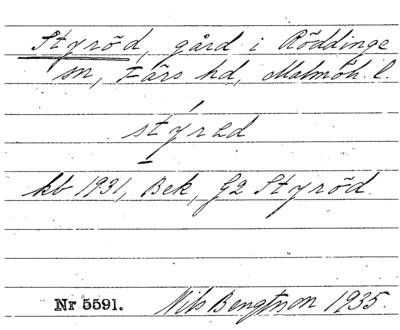 Styröd, gård i Röddinge
sn, Färs hd, Malmöh. l.
styrəd
kb 1931, Bek, G2 Styröd.
Nr 5591. Nils Bengtson 1935.